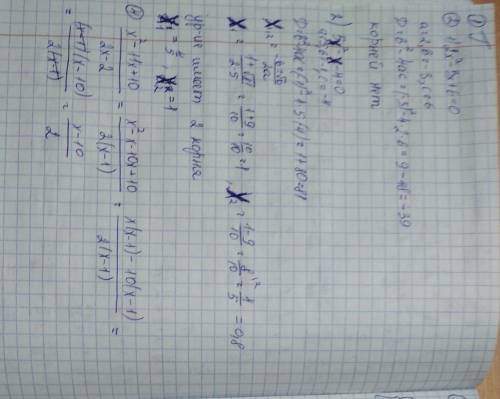 ① 1) 2x²-3x+6=0
a=2, b=-3, c=6
D=b²-4ac=(-3)²-4·2·6=9-48=-39
корней нет
2) 5x²-x-4=0
a=5, b=-1, c=-4
D=b²-4ac=(-1)²-4·5·(-4)=1+80=81
x₁,₂=
x₁= 1+√81 / 2·5 = 1+9 / 10 = 10/10 =1, x₂= 1-9 / 10 = 8/10 = 4/5 =0,8
ур-ие имеет 2 корня
x₁= 4/5, x₂=1
② x²-11x+10 / 2x-2 = x²-x-10x+10 / 2(x-1) = x(x-1)-10(x-1) / 2(x-1) =
= (x-1)(x-10) / 2(x-1) = x-10 / 2